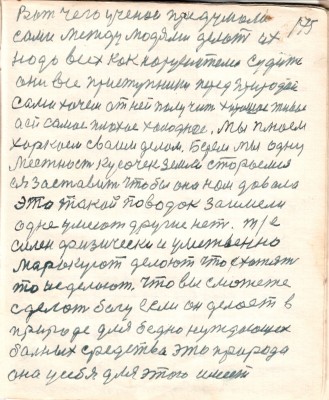 Вот чего ученои придумали 175
сами между людями делают их
надо всех как нарушители судить
они все приступники перед природай
сами хочем от ней получит хорошое
а ей самое плохое холодное, мы плюем
харкаем своим делом. Берем мы одну
местност кусочек земли стараемся
ея заставит чтобы она нам давала
это такой поводок заимели
одне имеют другие нет. т/е
силен физически и умственно
маракуют делают что схотят
то и сделают. что вы сможете
сделат богу если он делает в
природе для бедно нуждающих
больных средства это природа
она у себя для этого имеет